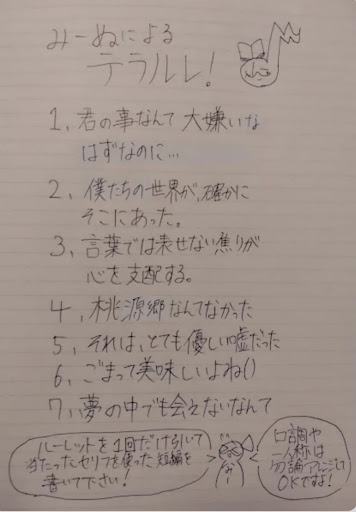 みーぬによる
テラルレ!
1、君の事なんて大嫌いな
はずなのに…
2、僕たちの世界が、確かに
そこにあった。
3、言葉では表せない焦りが
心を支配する。
4、桃源郷なんてなかった
5、それは、とても優しい嘘だった
6、ごまって美味しいよね()
7、夢の中でも会えないなんて
ルーレットを1回だけ引いて
当たったセリフを使った短編を
書いて下さい!
口調や
一人称は
勿論アレンジして
OKですよ!